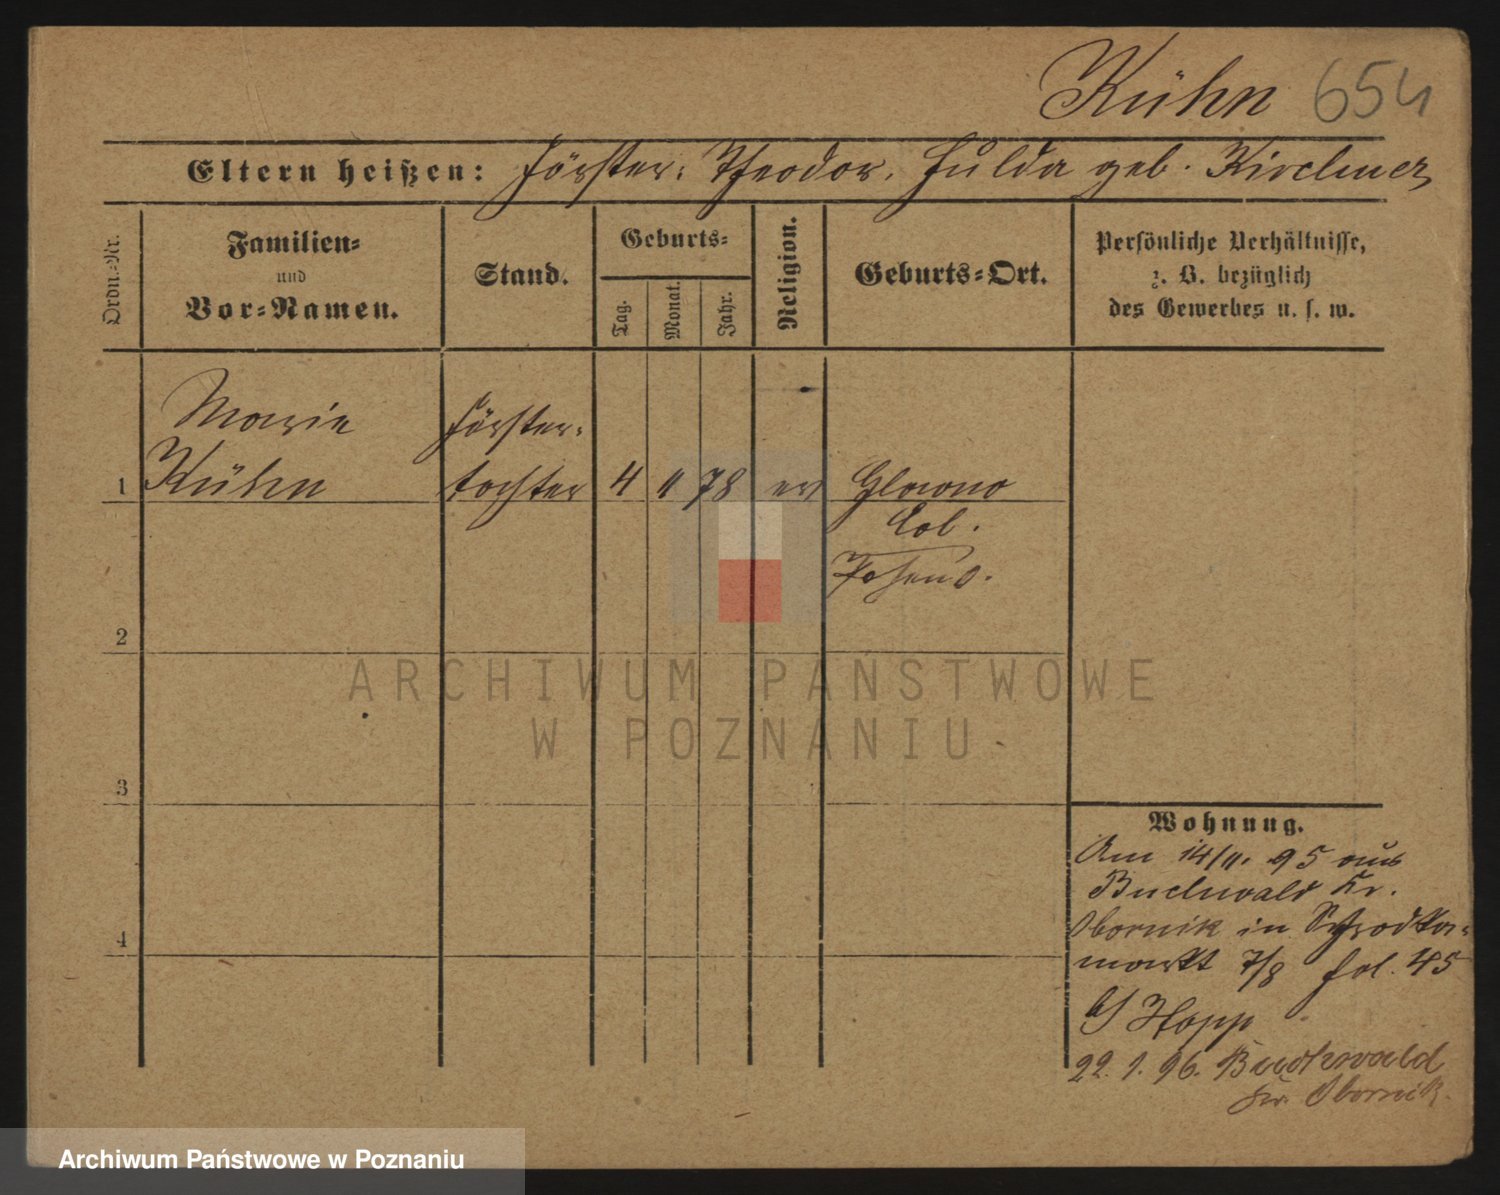 Kühn 654
Eltern heißen: Förster: Theodor. Hulda geb. Kirchner
Ordn.-Nr.
Familien-
und
Vor-Namen.
Stand.
Geburts-
Tag.
Monat.
Jahr.
Religion.
Geburts-Ort.
Persönliche Verhältnisse,
z. B. bezüglich
des Gewerbes u. s. w.
Marie Förster-
1 Kühn tochter 4 11 78 ev Glowno
Col.
Posen O.
2
3
4
Wohnung.
Am 14/11. 95 aus
Buchwald Kr.
Obornik in Schrodka-
markt 7/8 fol. 45
b/ Hopp
22. 1. 96. Buchwald
Kr. Obornik.
ARCHIWUM PAŃSTWOWE
W POZNANIU
Archiwum Państwowe w Poznaniu